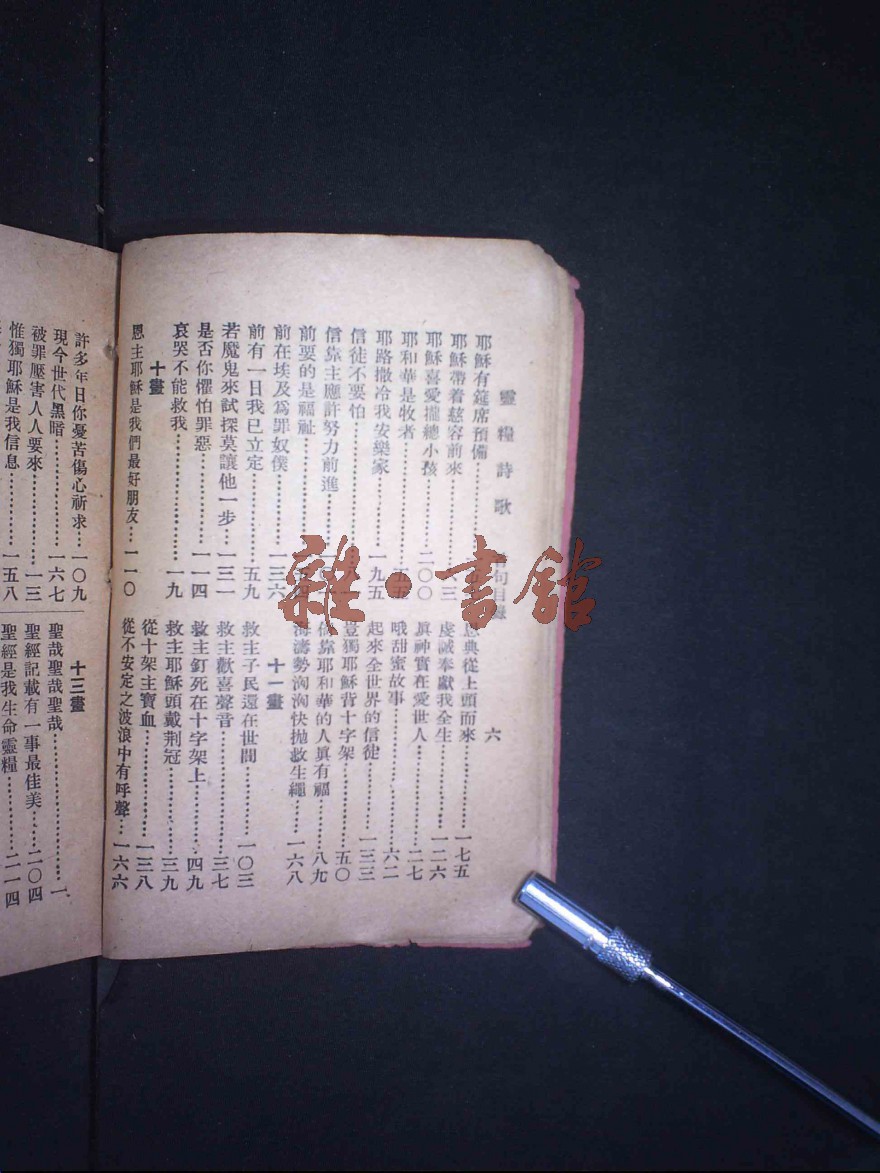 靈糧詩歌 首句目錄 六
耶穌有筵席預備
耶穌帶着慈容前來
耶穌喜愛攏總小孩……二〇〇
耶和華是牧者……五五
耶路撒冷我安樂家……一九五
信徒不要怕
信靠主應許努力前進
前要的是福祉
前在埃及爲罪奴僕……一三六
前有一日我已立定……五九
若魔鬼來試探莫讓他一步…一三一
是否你懼怕罪惡……一一四
哀哭不能救我……一九
十畫
恩主耶穌是我們最好朋友…一一〇
恩典從上頭而來……一七五
虔誠奉獻我全生……一二六
眞神實在愛世人……二七
哦甜蜜故事……六二
起來全世界的信徒……一三三
豈獨耶穌背十字架……五〇
倚靠耶和華的人眞有福……八九
海濤勢洶洶快拋救生繩……一六八
十一畫
救主子民還在世間……一〇三
救主歡喜聲音……三七
救主釘死在十字架上……四九
救主耶穌頭戴荆冠……三九
從十架主寶血……一三八
從不安定之波浪中有呼聲…一六六
許多年日你憂苦傷心祈求…一〇九
現今世代黑暗……一六七
被罪壓害人人要來……一三
惟獨耶穌是我信息……一五八
十三畫
聖哉聖哉聖哉……一
聖經記載有一事最佳美……二〇四
聖經是我生命靈糧……二一四
雜·書館